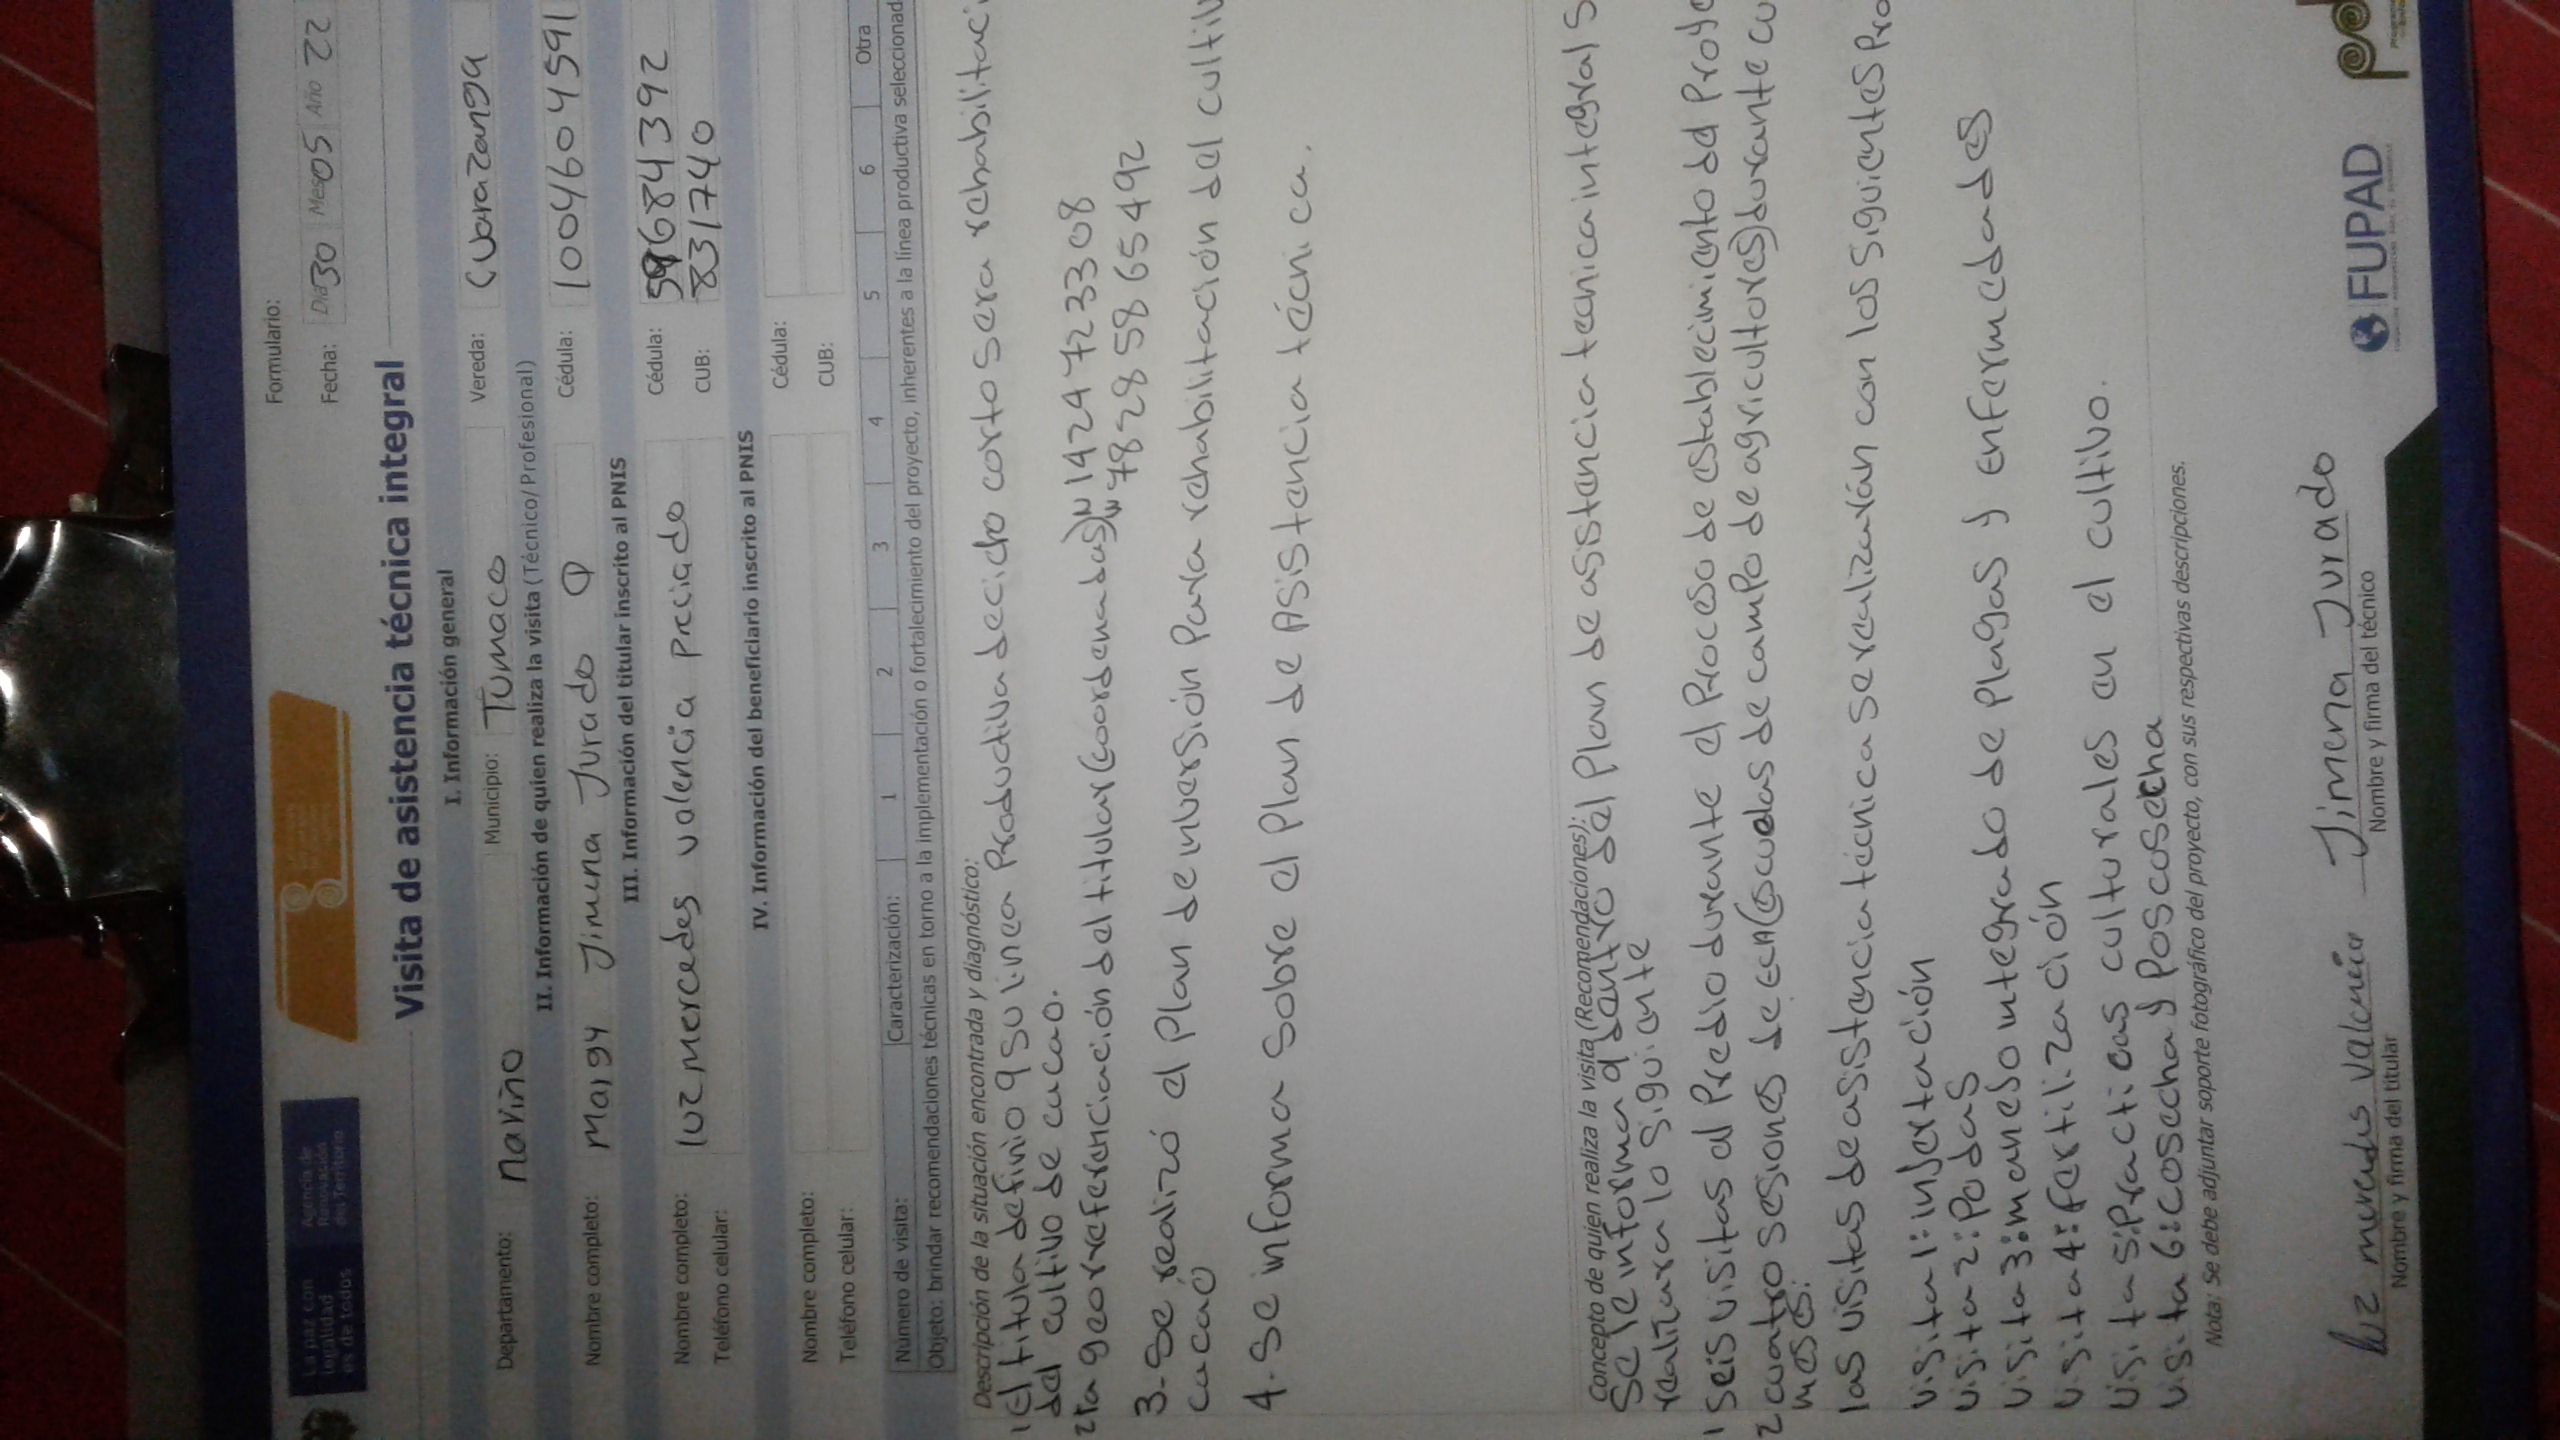 La paz con legalidad es de todos
Agencia de Renovación del Territorio
Formulario:
Fecha: Dia 30 Mes 05 Año 22
Visita de asistencia técnica integral
I. Información general
Departamento: Nariño Municipio: Tumaco Vereda: Cuarazanga
II. Información de quien realiza la visita (Técnico/Profesional)
Nombre completo: Maigy Jimena Jurado O Cédula: 1004604591
III. Información del titular inscrito al PNIS
Nombre completo: luz mercedes valencia preciado Cédula: 59684392
Teléfono celular: CUB: 831740
IV. Información del beneficiario inscrito al PNIS
Nombre completo: Cédula:
Teléfono celular: CUB:
Número de visita: Caracterización: 1 2 3 4 5 6 Otra
Objeto: brindar recomendaciones técnicas en torno a la implementación o fortalecimiento del proyecto, inherentes a la línea productiva seleccionad
Descripción de la situación encontrada y diagnóstico:
1 El titula definio q su linea Productiva de ciclo corto sera rehabilitaci
del cultivo de cacao.
2 la georreferenciación del titular (coordenadas) N 1424723308
W 78285865492
3-Se realizó el Plan de inversión Para rehabilitación del cultiv
cacao
4-Se informa Sobre el Plan de Asistencia técnica.
Concepto de quien realiza la visita (Recomendaciones):
Se le informa q dentro del Plan de asistencia tecnica integral S
realizara lo siguiente
1 seis visitas al Predio durante el Proceso de establecimiento del Proye
2 cuatro sesiones de ECA (Escuelas de campo de agricultores) durante cu
meses:
las visitas de asistencia técnica se realizarán con los siguientes Pro
visita 1: injertación
visita 2: Podas
visita 3: manejo integrado de Plagas y enfermedades
visita 4: fertilización
visita 5: Practicas culturales en el cultivo.
visita 6: cosecha y Poscosecha
Nota: Se debe adjuntar soporte fotográfico del proyecto, con sus respectivas descripciones.
luz mercedes valencia Jimena Jurado
Nombre y firma del titular Nombre y firma del técnico
FUPAD